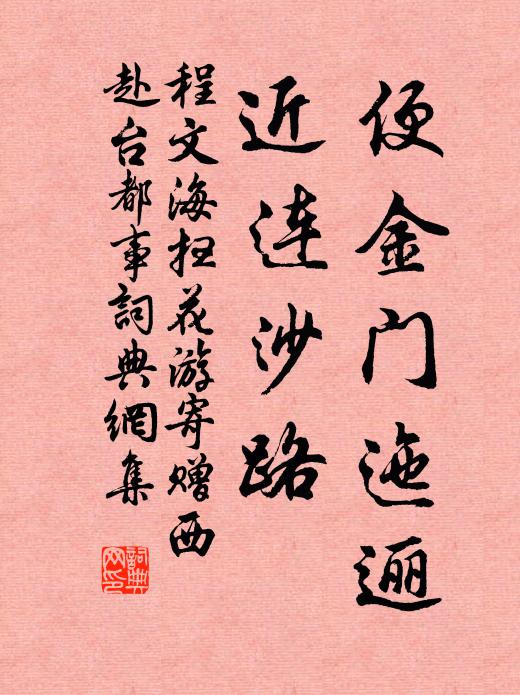 便金门迤逦
近连沙路
程文海扫花游寄赠西
赴台都事詞典網集
詞典
网印